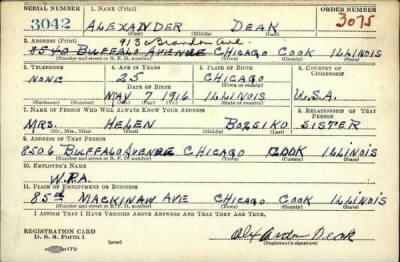 SERIAL NUMBER 1. NAME (Print) ORDER NUMBER
3042 ALEXANDER DEAK 3075
(First) (Middle) (Last)
2. ADDRESS (Print) 913 Brandon Ave.
8540 BUFFALO AVENUE CHICAGO COOK ILLINOIS
(Number and street or R. F. D. number) (Town) (County) (State)
3. TELEPHONE 4. AGE IN YEARS 5. PLACE OF BIRTH 6. COUNTRY OF CITIZENSHIP
NONE 25 CHICAGO
DATE OF BIRTH
MAY 7 1916 ILLINOIS U.S.A.
(Exchange) (Number) (Mo.) (Day) (Yr.) (State or country)
7. NAME OF PERSON WHO WILL ALWAYS KNOW YOUR ADDRESS 8. RELATIONSHIP OF THAT PERSON
MRS. HELEN BORSIKO SISTER
(Mr., Mrs., Miss) (First) (Middle) (Last)
9. ADDRESS OF THAT PERSON
8506 BUFFALO AVENUE CHICAGO COOK ILLINOIS
(Number and street or R. F. D. number) (Town) (County) (State)
10. EMPLOYER'S NAME
W.P.A.
11. PLACE OF EMPLOYMENT OR BUSINESS
85th MACKINAW AVE CHICAGO COOK ILLINOIS
(Number and street or R. F. D. number) (Town) (County) (State)
I AFFIRM THAT I HAVE VERIFIED ABOVE ANSWERS AND THAT THEY ARE TRUE.
REGISTRATION CARD
D. S. S. Form 1 Alexander Deak
170 (Registrant's signature)